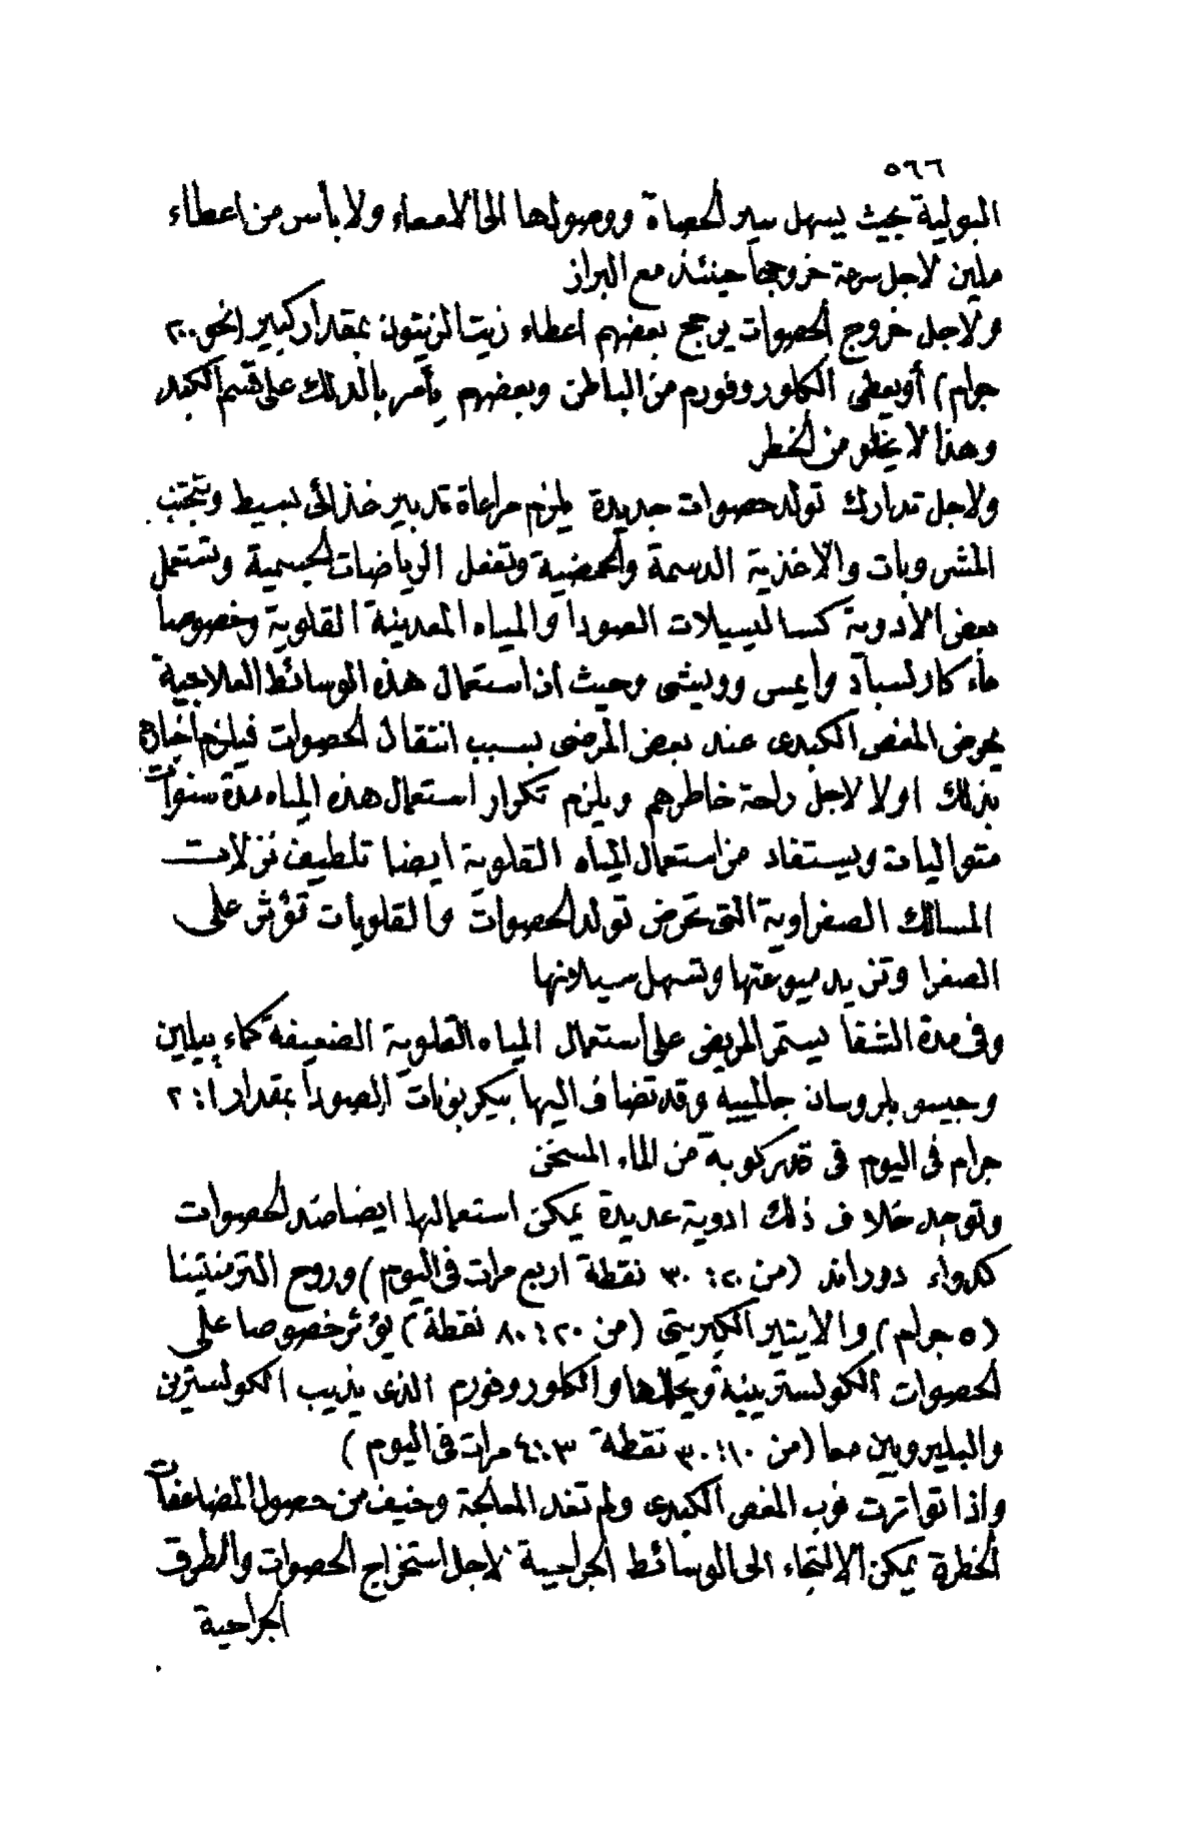 ٥٦٦
البولية بحيث يسهل سير الحصاة ووصولها الى الامعاء ولا بأس من اعطاء
ملين لاجل سرعة خروجها حينئذ مع البراز
ولاجل خروج الحصوات يرجح بعضهم اعطاء زيت الزيتون بمقدار كبير (نحو ٢٠٠
جرام) أو يعطى الكلوروفورم من الباطن وبعضهم يأمر بالدلك على قسم الكبد
وهذا لا يخلو من الخطر
ولاجل تدارك تولد حصوات جديدة يلزم مراعاة تدبير غذائى بسيط وتجتنب
المشروبات والاغذية الدسمة والحمضية وتفعل الرياضات الجسمية وتستعمل
بعض الأدوية كساليسيلات الصودا والمياه المعدينة القلوية وخصوصا
ماء كارلسباد وأيمس وويشى وحيث أن استعمال هذه الوسائط العلاجية
يحرض المغص الكبدى عند بعض المرضى بسبب انتقال الحصوات فيلزم اخبارهم
بذلك اولا لاجل راحة خاطرهم ويلزم تكرار استعمال هذه المياه مدة سنوات
متواليات ويستفاد من استعمال المياه القلوية ايضا تلطيف نزلات
المسالك الصفراوية التى تحرض تولد الحصوات والقلويات تؤثر على
الصفرا وتزيد ميوعتها وتسهل سيلانها
وفى مدة الشفا يستمر المريض على استعمال المياه القلوية الضعيفة كماء بيلين
وجيسو بلروسان جالمييه وقد تضاف اليها بيكربونات الصودا بمقدار ١ : ٢
جرام فى اليوم فى قدر كوبة من الماء المسخن
وتوجد خلاف ذلك ادوية عديدة يمكن استعمالها ايضا ضد الحصوات
كدواء دوراند (من ٢٠ : ٣٠ نقطة اربع مرات فى اليوم) وروح الترمنتينا
(٥ جرام) والايتير الكبريتى (من ٢٠ : ٨٠ نقطة) يؤثر خصوصا على
الحصوات الكولسترينية ويحللها والكلوروفورم الذى يذيب الكولسترين
والبليروبين معا (من ١٠ : ٣٠ نقطة ٣ : ٤ مرات فى اليوم)
واذا تواترت نوب المغص الكبدى ولم تفد المعالجة وخيف من حصول المضاعفات
الخطرة يمكن الالتجاء الى الوسائط الجراحية لاجل استخراج الحصوات والطرق
الجراحية